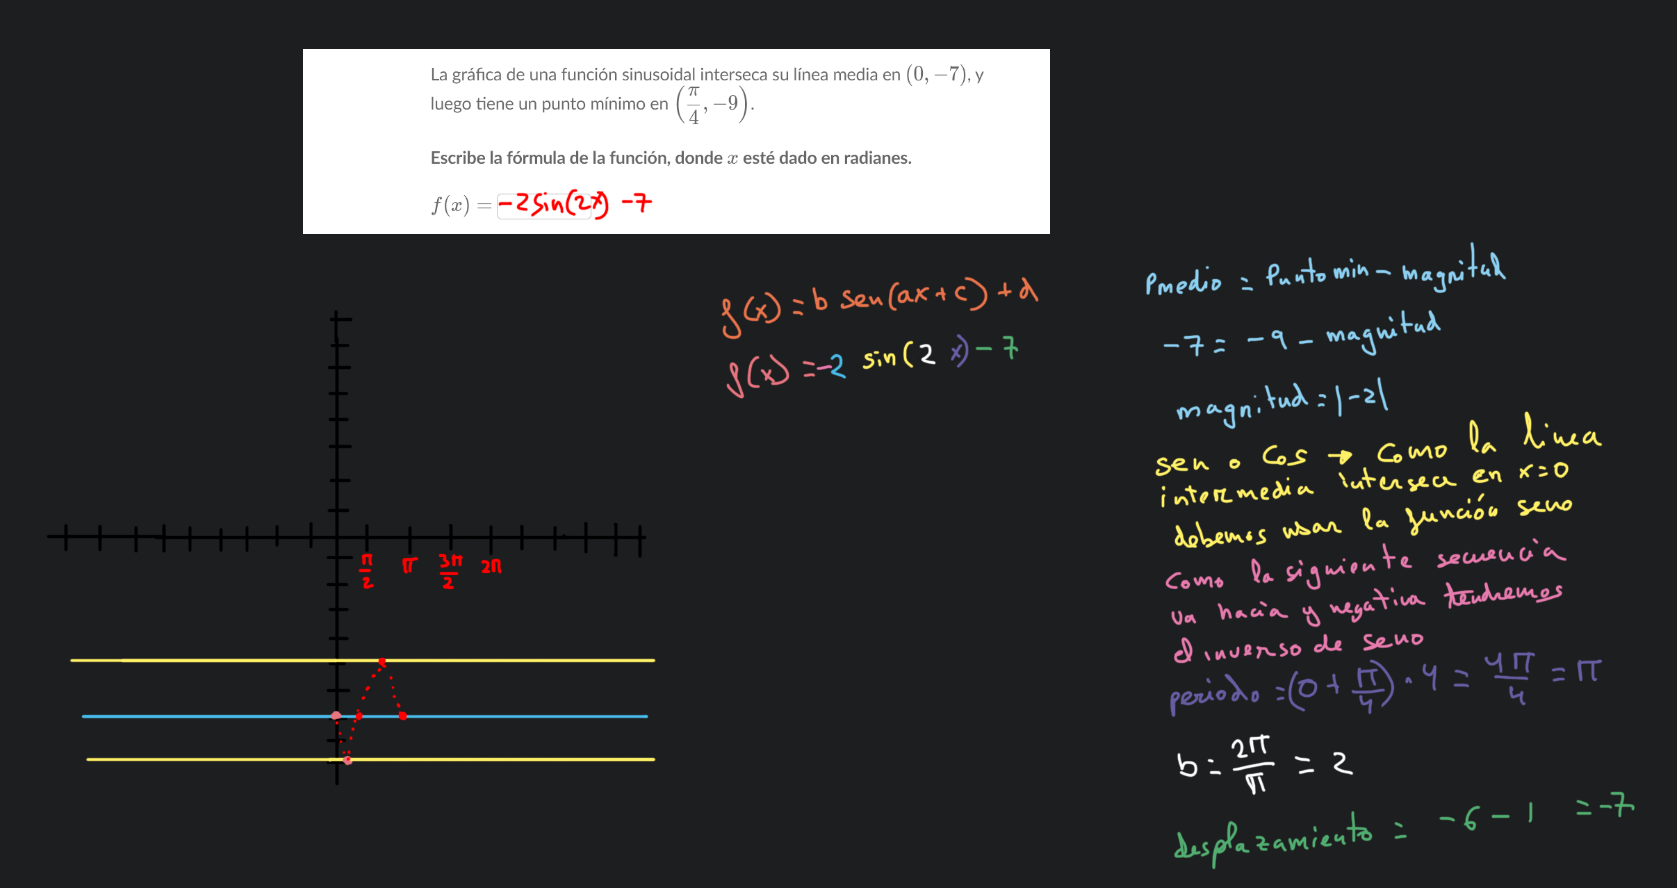 La gráfica de una función sinusoidal interseca su línea media en (0, −7), y
luego tiene un punto mínimo en (π/4, −9).
Escribe la fórmula de la función, donde x esté dado en radianes.
f(x) = -2sin(2x) -7
f(x) = b sen(ax+c) + d
f(x) = -2 sin(2x) - 7
π/2 π 3π/2 2π
Pmedio = Punto min - magnitud
-7 = -9 - magnitud
magnitud = |-2|
sen o cos → Como la linea
intermedia interseca en x=0
debemos usar la función seno
Como la siguiente secuencia
va hacia y negativa tendremos
el inverso de seno
periodo = (0 + π/4) · 4 = 4π/4 = π
b = 2π/π = 2
desplazamiento = -6 - 1 = -7